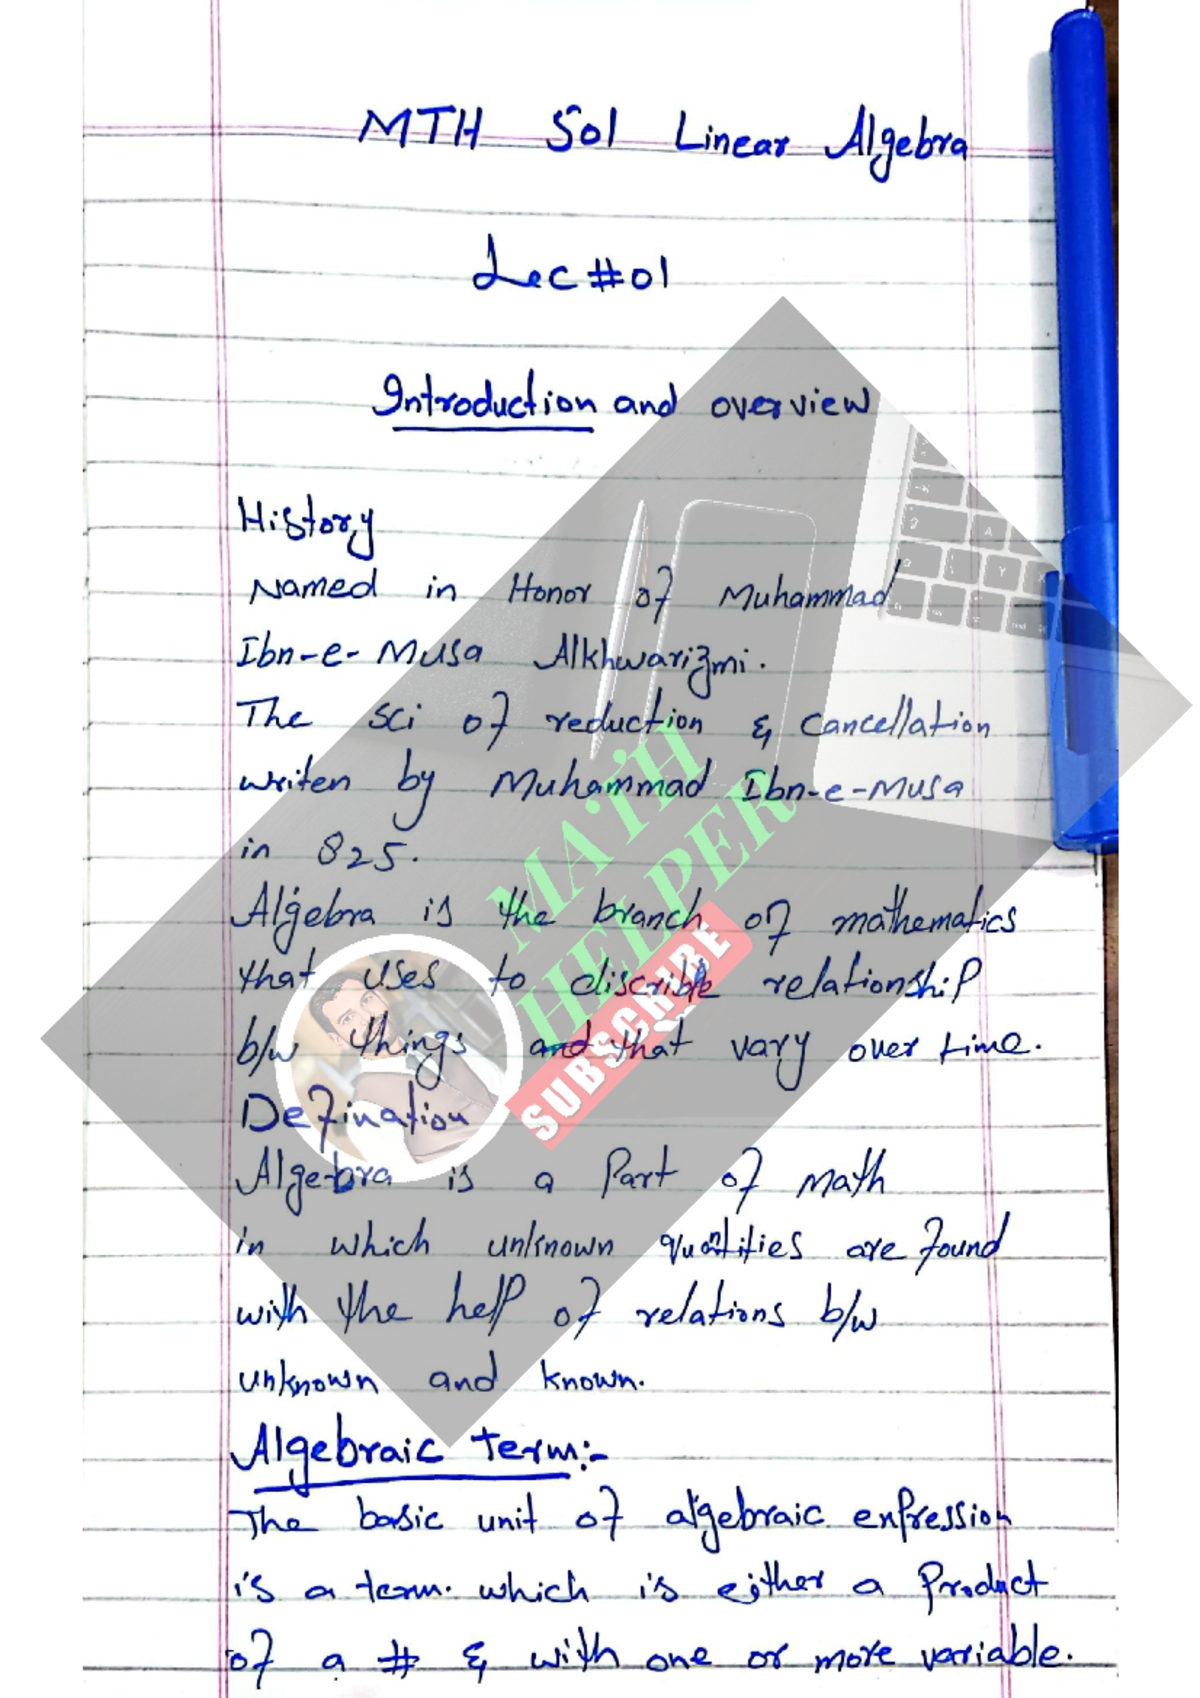 MTH 501 Linear Algebra
Lec #01
Introduction and overview
History
Named in Honor of Muhammad
Ibn-e-Musa Alkhwarizmi.
The sci of reduction & Cancellation
writen by Muhammad Ibn-e-Musa
in 825.
Algebra is the branch of mathematics
that uses to discrible relationship
b/w things and that vary over time.
Defination
Algebra is a Part of Math
in which unknown quatities are found
with the help of relations b/w
unknown and known.
Algebraic term:-
The basic unit of algebraic enpression
is a term. which is either a Product
of a # & with one or more variable.
MATH
HELPER
SUBSCRIBE